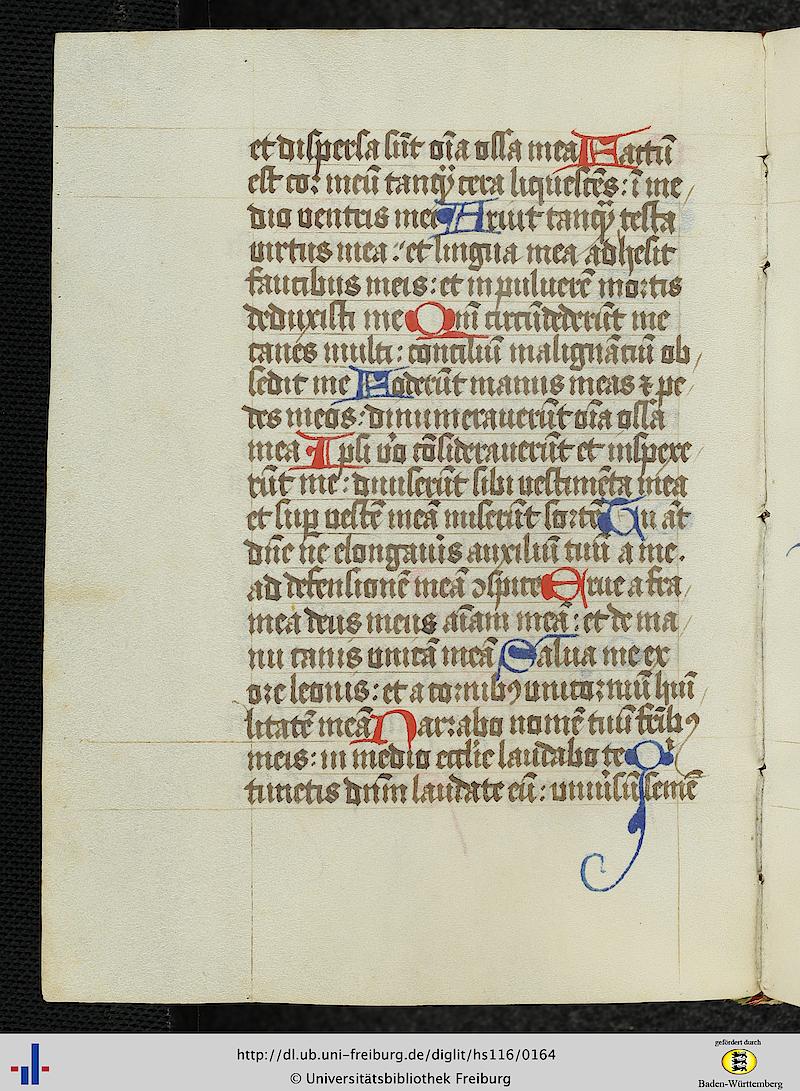 et dispersa sūt oīa ossa mea Factū
est cor meū tanqͣ cera liquescēs : ī me
dio ventris mei Aruit tanqͣ testa
virtus mea : et lingua mea adhesit
faucibus meis : et in puluerē mortis
deduxisti me Qm̄ circūdederūt me
canes multi : conciliū malignātiū ob
sedit me Foderūt manus meas ⁊ pe
des meos : dinumerauerūt oīa ossa
mea Ipsi v̊o cōsiderauerūt et inspexe
rūt me : diuiserūt sibi vestimēta mea
et sup vestē meā miserūt sortē Tu āt
dn̄e ne elongaūis auxiliū tuū a me .
ad defensionē meā ɔspice Erue a fra
mea deus meus aīam meā : et de ma
nu canis vnicā meā Salua me ex
ore leonis : et a cornibꝯ vnicorniū hūi
litatē meā Narrabo nomē tuū frībꝯ
meis : in medio ecclīe laudabo te Qi
timetis dnm laudate eū : vniūsū semē
http://dl.ub.uni-freiburg.de/diglit/hs116/0164
© Universitätsbibliothek Freiburg
gefördert durch
Baden-Württemberg